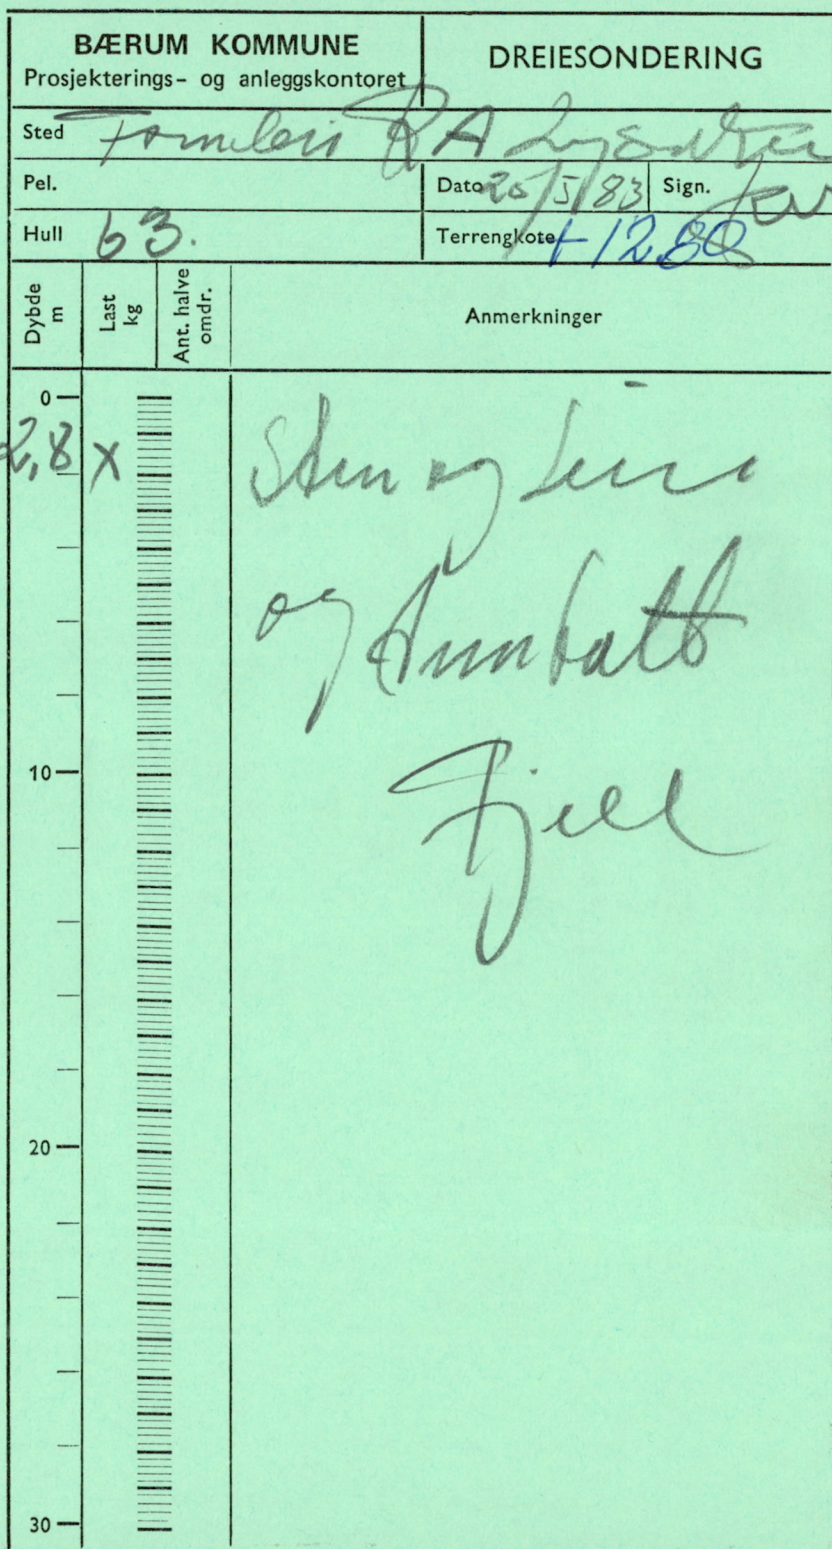 BÆRUM KOMMUNE
Prosjekterings- og anleggskontoret
DREIESONDERING
Sted RA Lysaker
Pel.
Dato 20/5/83 Sign.
Hull 63.
Terrengkote +12.80
Dybde m
Last kg
Ant. halve omdr.
Anmerkninger
0
2,8 x
Sten og Leire
og Antatt
Fjell
10
20
30